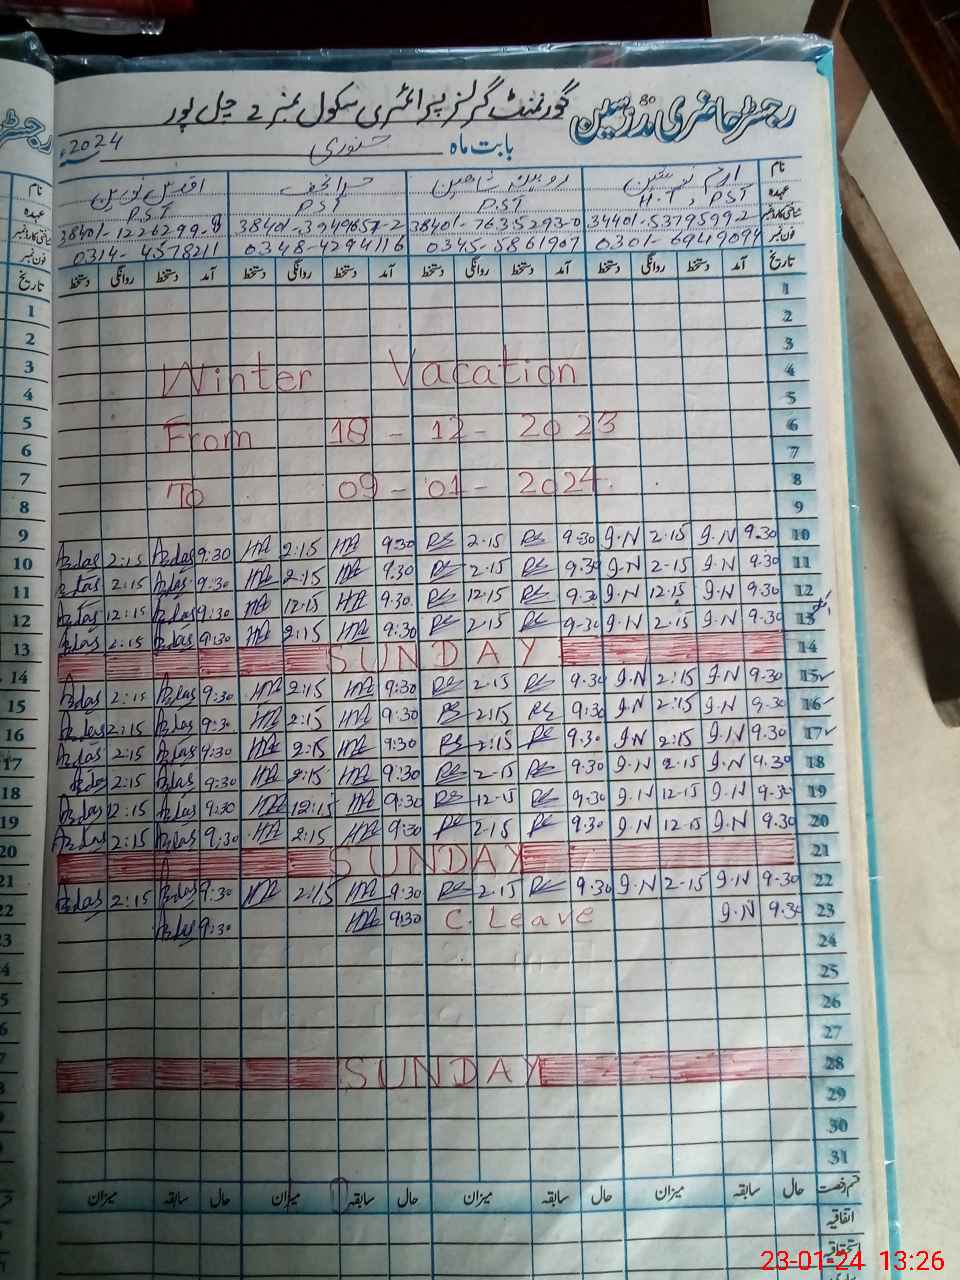 رجسٹر حاضری مدرسین گورنمنٹ گرلز پرائمری سکول نمبر 2 چل پور
بابت ماہ جنوری سنہ 2024ء
نام ارم نوشین روبینہ شاہین حرا نجف اقدس نورین
عہدہ H.T, PST P.S.T PST P.S.T
شناختی کارڈ نمبر 34401-5379599-2 38401-7635293-0 38401-3949657-2 38401-1226299-8
فون نمبر 0301-6949094 0345-5861907 0348-4294116 0314-4578211
تاریخ آمد دستخط روانگی دستخط آمد دستخط روانگی دستخط آمد دستخط روانگی دستخط آمد دستخط روانگی دستخط
1
2
3
Winter Vacation 4
5
From 18-12-2023 6
7
To 09-01-2024. 8
9
2:15 9:30 2:15 9:30 2.15 9.30 I.N 2.15 I.N 9.30 10
2:15 9:30 2:15 9.30 2.15 9.30 I.N 2.15 I.N 9.30 11
12:15 9:30 12.15 9.30 12.15 9.30 I.N 12.15 I.N 9.30 12
2:15 9:30 2:15 9:30 2.15 9.30 I.N 2.15 I.N 9.30 13
SUNDAY 14
2:15 9:30 2:15 9:30 2.15 9.30 I.N 2:15 I.N 9.30 15
2:15 9:30 2:15 9:30 2:15 9:30 I.N 2:15 I.N 9.30 16
2:15 9:30 2:15 9:30 2:15 9.30 I.N 2:15 I.N 9.30 17
2:15 9:30 2:15 9:30 2.15 9.30 I.N 2.15 I.N 9.30 18
12:15 9:30 12:15 9:30 12.15 9.30 I.N 12.15 I.N 9.30 19
2:15 9:30 2:15 9:30 2.15 9.30 I.N 12.15 I.N 9.30 20
SUNDAY 21
2:15 9:30 2:15 9:30 2.15 9.30 I.N 2.15 I.N 9.30 22
9:30 9:30 C. Leave I.N 9.30 23
24
25
26
27
SUNDAY 28
29
30
31
قسم رخصت حال سابقہ میزان حال سابقہ میزان حال سابقہ میزان حال سابقہ میزان
اتفاقیہ
استحقاقیہ
23-01-24 13:26